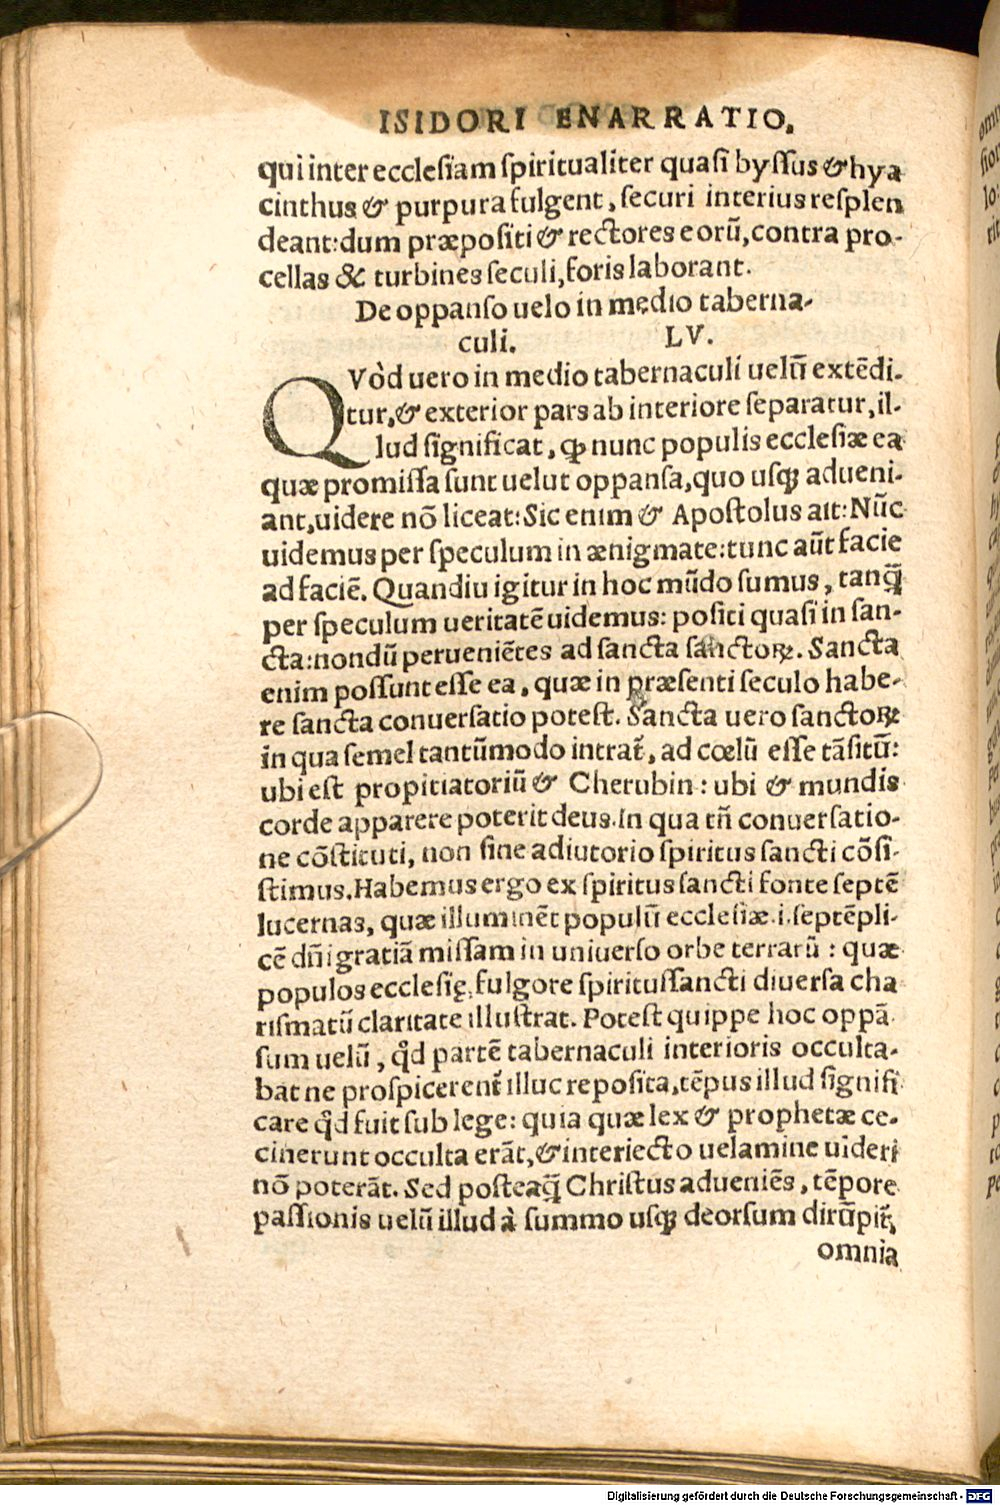 ISIDORI ENARRATIO.
qui inter ecclesiam ſpiritualiter quaſi byſſus & hya
cinthus & purpura fulgent, ſecuri interius reſplen
deant: dum præpoſiti & rectores eorũ, contra pro-
cellas & turbines ſeculi, foris laborant.
De oppanſo uelo in medio taberna-
culi. LV.
QVòd uero in medio tabernaculi uelũ extẽdi-
tur, & exterior pars ab interiore ſeparatur, il-
lud ſignificat, ꝙ nunc populis eccleſiæ ea
quæ promiſſa ſunt uelut oppanſa, quo uſqꝫ adueni-
ant, uidere nõ liceat: Sic enim & Apoſtolus ait: Nũc
uidemus per ſpeculum in ænigmate: tunc aũt facie
ad faciẽ. Quandiu igitur in hoc mũdo ſumus, tanꝗ̃
per ſpeculum ueritatẽ uidemus: poſiti quaſi in ſan-
cta: nondũ perueniẽtes ad ſancta ſanctoꝝ. Sancta
enim poſſunt eſſe ea, quæ in præſenti ſeculo habe-
re ſancta conuerſatio poteſt. Sancta uero ſanctoꝝ
in qua ſemel tantũmodo intrat̃, ad cœlũ eſſe tãſitũ:
ubi eſt propitiatoriũ & Cherubin: ubi & mundis
corde apparere poterit deus. In qua tñ conuerſatio-
ne cõſtituti, non ſine adiutorio ſpiritus ſancti cõſi-
ſtimus. Habemus ergo ex ſpiritus ſancti fonte ſeptẽ
lucernas, quæ illuminẽt populũ eccleſiæ .i. ſeptẽpli-
cẽ dñi gratiã miſſam in univerſo orbe terrarũ: quæ
populos eccleſię, fulgore ſpirituſſancti diuerſa cha
riſmatũ claritate illuſtrat. Poteſt quippe hoc oppã
ſum uelũ, qd̓ partẽ tabernaculi interioris occulta-
bat ne proſpicerent̃ illuc repoſita, tẽpus illud ſignifi
care qd̓ fuit ſub lege: quia quæ lex & prophetæ ce-
cinerunt occulta erãt, & interiecto uelamine uideri
nõ poterãt. Sed poſteaꝗ̃ Chriſtus adueniẽs, tẽpore
paſſionis uelũ illud à ſummo uſqꝫ deorſum dirũpit̃,
omnia
Digitalisierung gefördert durch die Deutsche Forschungsgemeinschaft - DFG